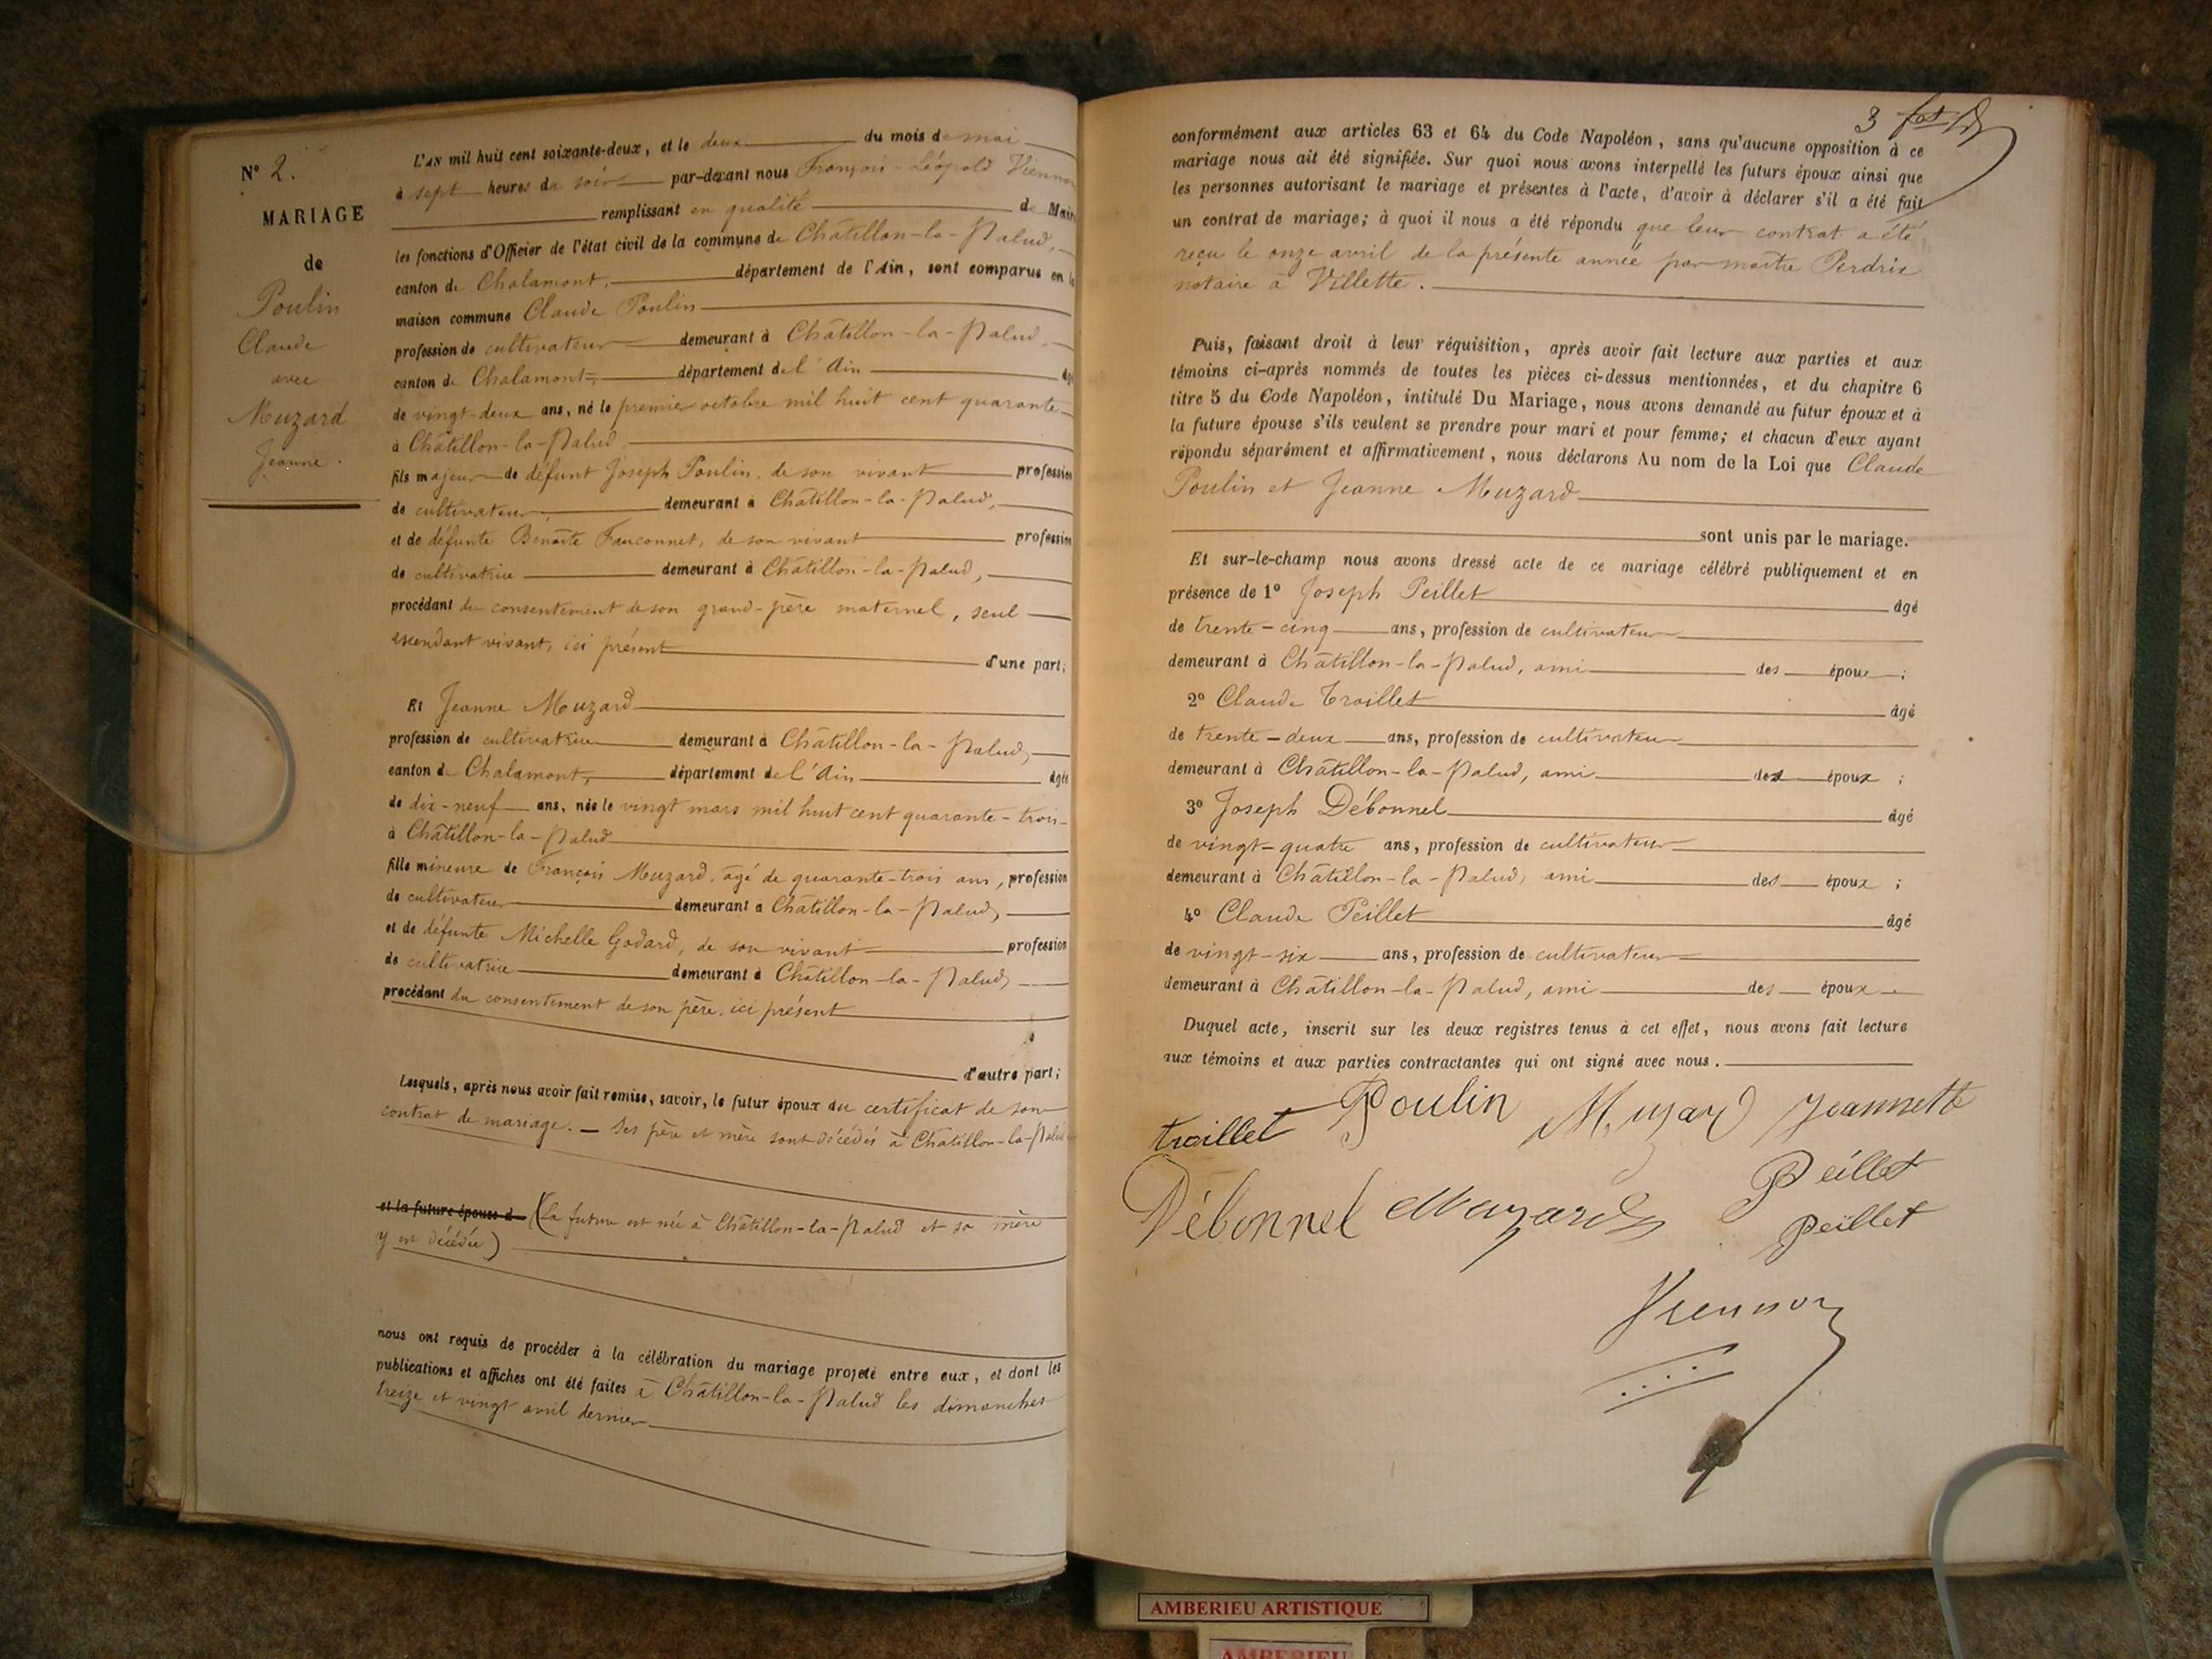 N° 2.
MARIAGE
de
Poulin
Claude
avec
Muzard
Jeanne.
L'AN mil huit cent soixante-deux, et le deux du mois de mai
à sept heures du soir par-devant nous François-Léopold Viennon
remplissant en qualité de Maire
les fonctions d'Officier de l'état civil de la commune de Châtillon-la-Palud,
canton de Chalamont, département de l'Ain, sont comparus en la
maison commune Claude Poulin
profession de cultivateur demeurant à Châtillon-la-Palud,
canton de Chalamont, département de l'Ain âgé
de vingt-deux ans, né le premier octobre mil huit cent quarante-
à Châtillon-la-Palud
fils majeur de défunt Joseph Poulin, de son vivant profession
de cultivateur demeurant à Châtillon-la-Palud,
et de défunte Benoîte Fauconnet, de son vivant profession
de cultivatrice demeurant à Châtillon-la-Palud,
procédant du consentement de son grand-père maternel, seul
ascendant vivant, ici présent d'une part;
Et Jeanne Muzard
profession de cultivatrice demeurant à Châtillon-la-Palud,
canton de Chalamont, département de l'Ain âgée
de dix-neuf ans, née le vingt mars mil huit cent quarante-trois-
à Châtillon-la-Palud
fille mineure de François Muzard, âgé de quarante-trois ans, profession
de cultivateur demeurant à Châtillon-la-Palud,
et de défunte Michelle Godard, de son vivant profession
de cultivatrice demeurant à Châtillon-la-Palud,
procédant du consentement de son père, ici présent
d'autre part;
Lesquels, après nous avoir fait remise, savoir, le futur époux du certificat de son
contrat de mariage. — Ses père et mère sont décédés à Châtillon-la-Palud
et la future épouse d (La future est née à Châtillon-la-Palud et sa mère
y est décédée)
nous ont requis de procéder à la célébration du mariage projeté entre eux, et dont les
publications et affiches ont été faites à Châtillon-la-Palud les dimanches
treize et vingt avril dernier
3
conformément aux articles 63 et 64 du Code Napoléon, sans qu'aucune opposition à ce
mariage nous ait été signifiée. Sur quoi nous avons interpellé les futurs époux ainsi que
les personnes autorisant le mariage et présentes à l'acte, d'avoir à déclarer s'il a été fait
un contrat de mariage; à quoi il nous a été répondu que leur contrat a été
reçu le onze avril de la présente année par maître Perdrix
notaire à Villette.
Puis, faisant droit à leur réquisition, après avoir fait lecture aux parties et aux
témoins ci-après nommés de toutes les pièces ci-dessus mentionnées, et du chapitre 6
titre 5 du Code Napoléon, intitulé Du Mariage, nous avons demandé au futur époux et à
la future épouse s'ils veulent se prendre pour mari et pour femme; et chacun d'eux ayant
répondu séparément et affirmativement, nous déclarons Au nom de la Loi que Claude
Poulin et Jeanne Muzard
sont unis par le mariage.
Et sur-le-champ nous avons dressé acte de ce mariage célébré publiquement et en
présence de 1° Joseph Peillet âgé
de trente-cinq ans, profession de cultivateur
demeurant à Châtillon-la-Palud, ami des époux;
2° Claude Traillet âgé
de trente-deux ans, profession de cultivateur
demeurant à Châtillon-la-Palud, ami des époux;
3° Joseph Débonnel âgé
de vingt-quatre ans, profession de cultivateur
demeurant à Châtillon-la-Palud, ami des époux;
4° Claude Peillet âgé
de vingt-six ans, profession de cultivateur
demeurant à Châtillon-la-Palud, ami des époux.
Duquel acte, inscrit sur les deux registres tenus à cet effet, nous avons fait lecture
aux témoins et aux parties contractantes qui ont signé avec nous.
traillet Poulin Muzard Jeannette
Débonnel Muzard Peillet
Peillet
Viennon
AMBERIEU ARTISTIQUE
AMBERIEU